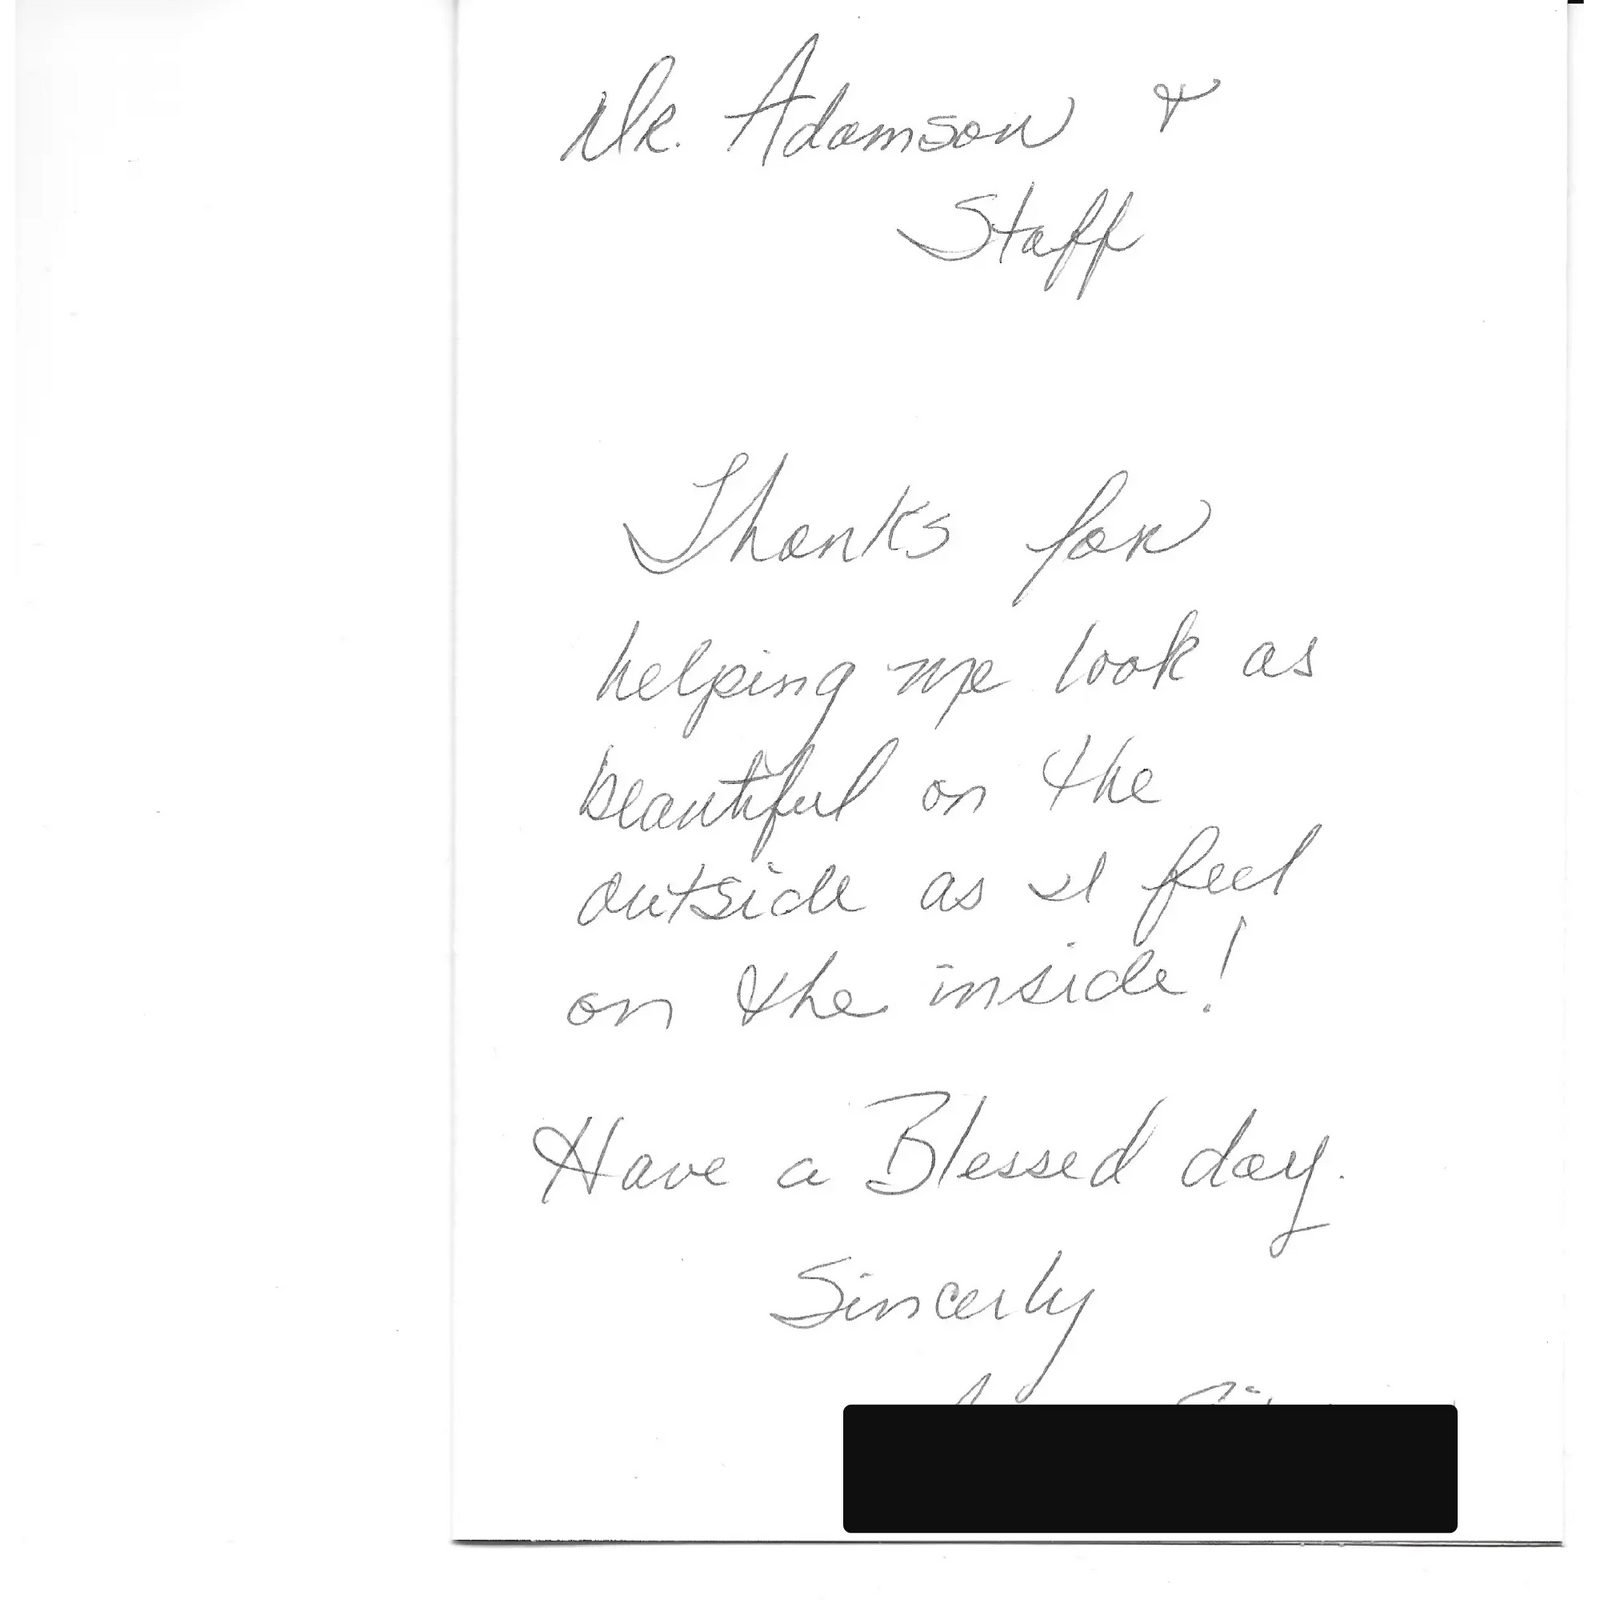 Dr. Adamson &
Staff
Thanks for
helping me look as
beautiful on the
outside as I feel
on the inside!
Have a Blessed day.
Sincerly